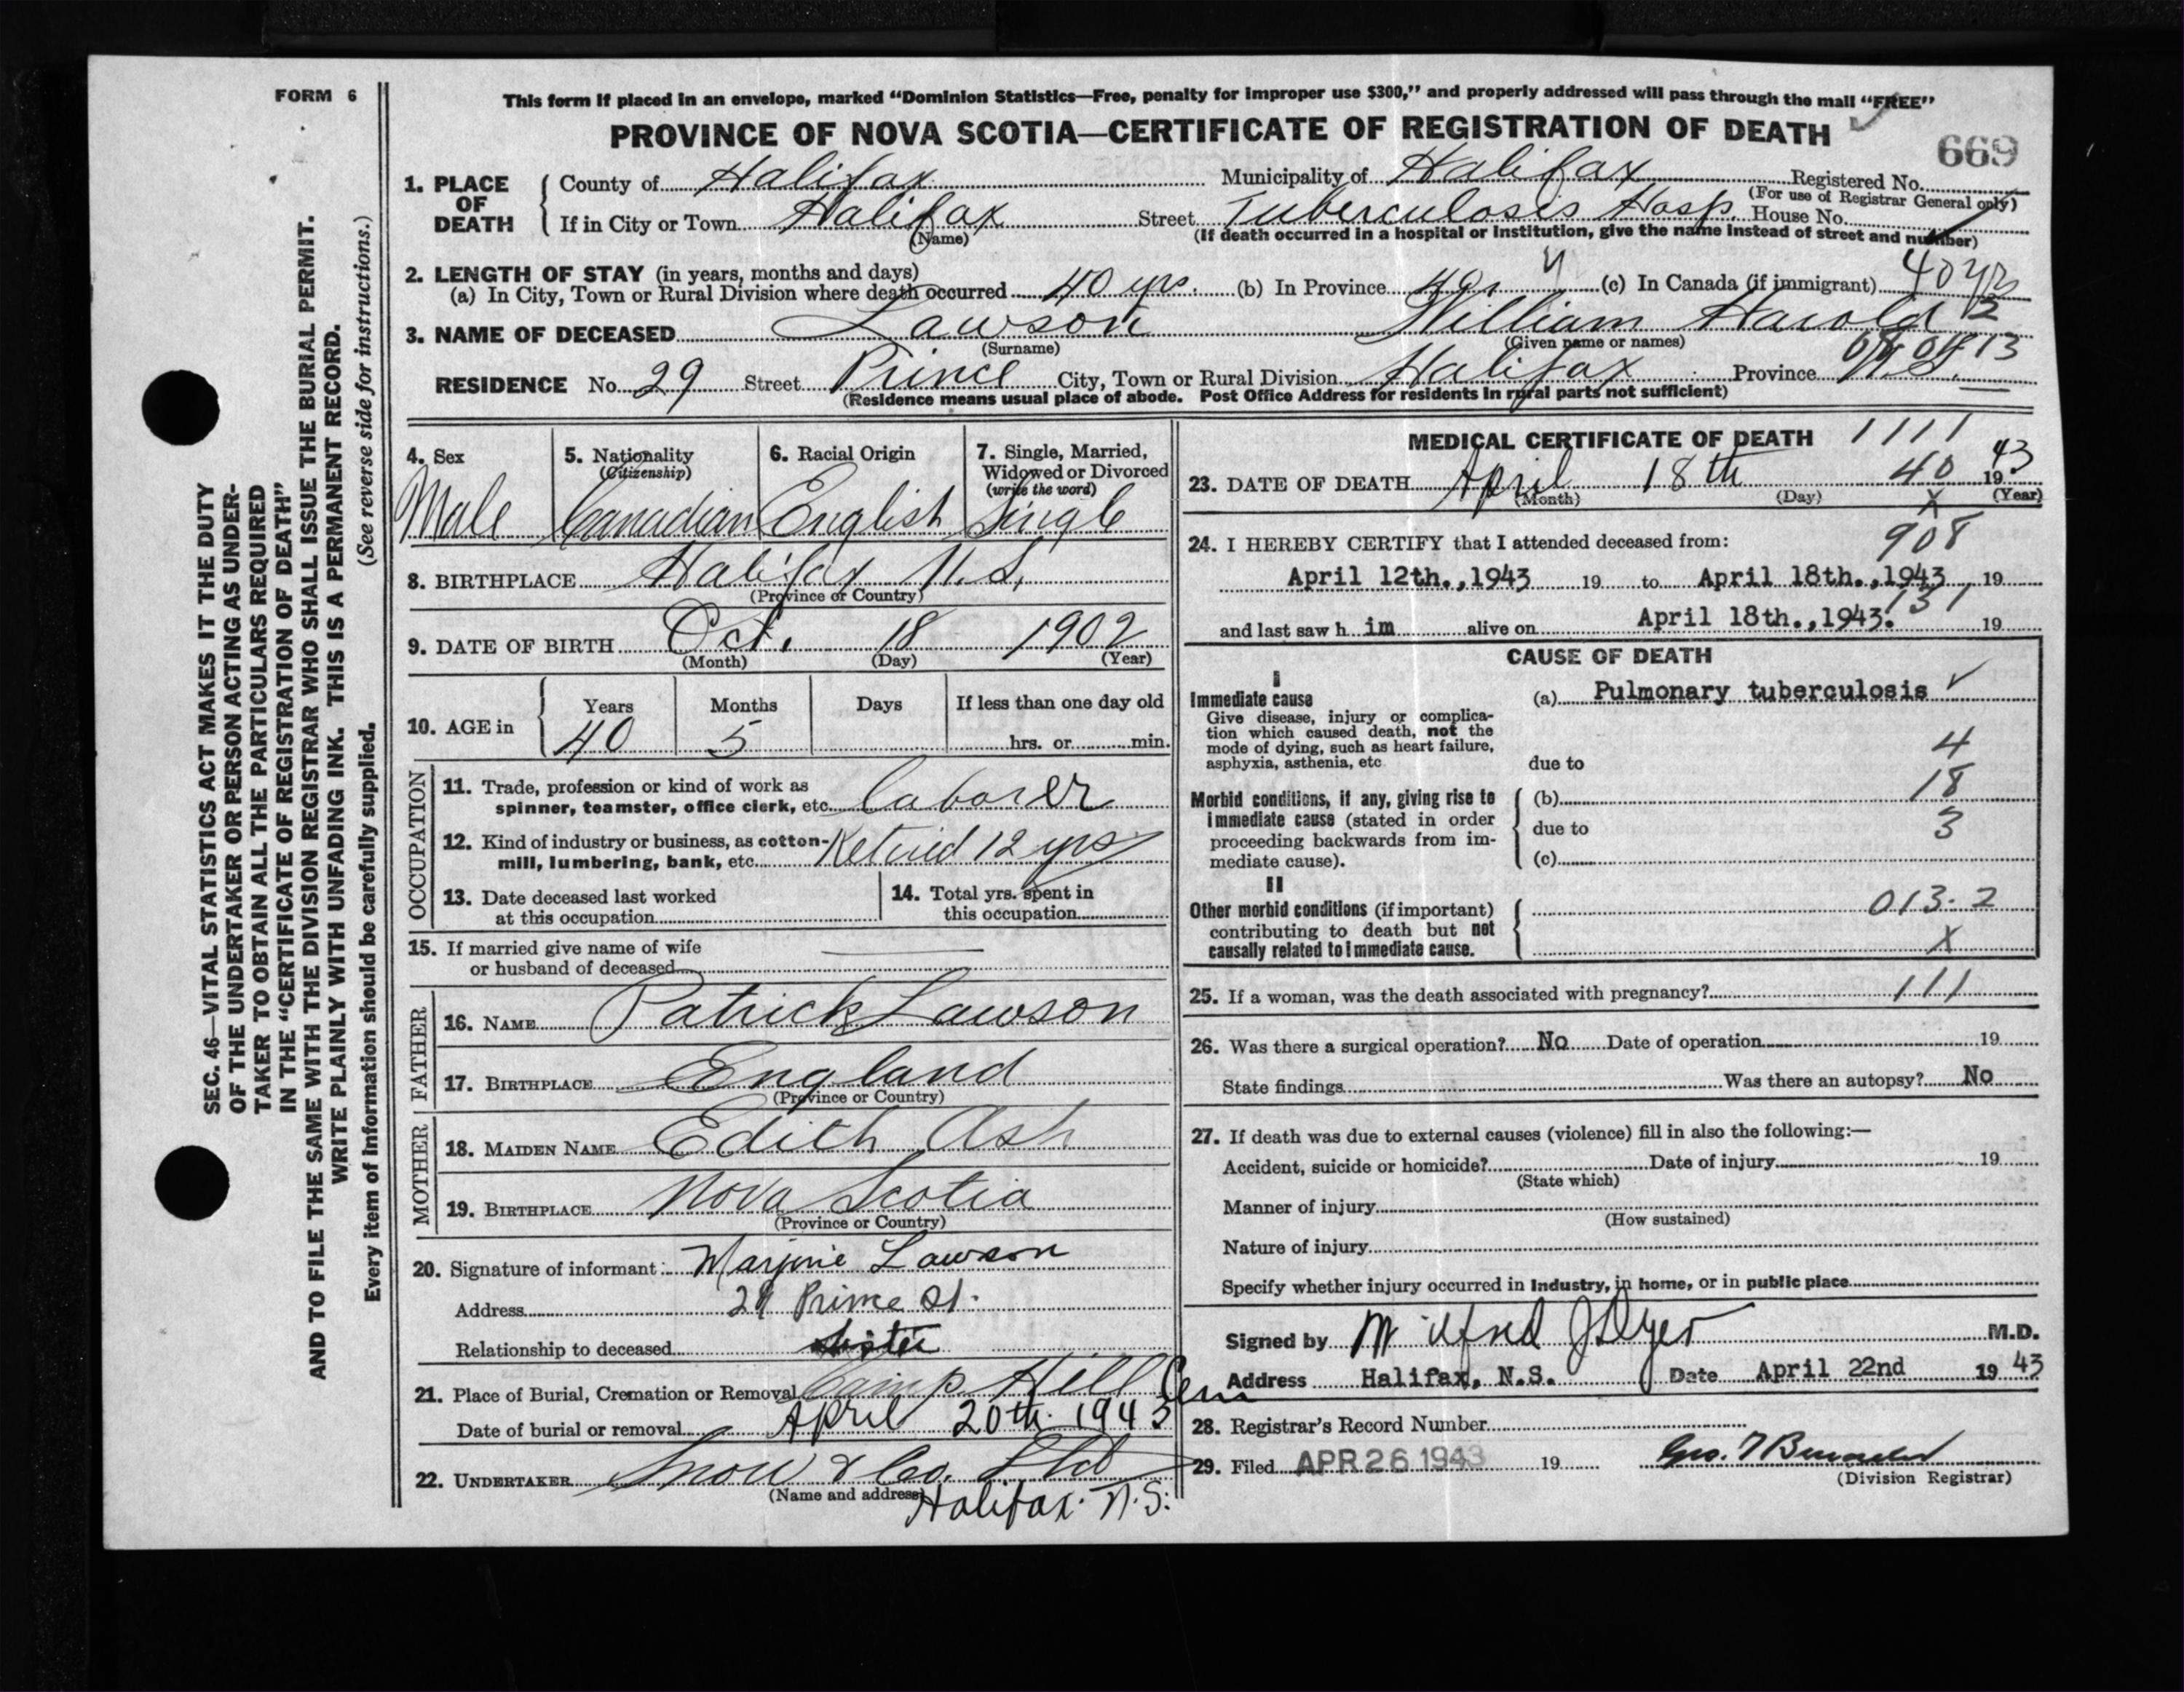 FORM 6
This form if placed in an envelope, marked “Dominion Statistics—Free, penalty for improper use $300,” and properly addressed will pass through the mail “FREE”
PROVINCE OF NOVA SCOTIA—CERTIFICATE OF REGISTRATION OF DEATH
669
1. PLACE OF DEATH County of Halifax Municipality of Halifax Registered No.
(For use of Registrar General only)
If in City or Town Halifax Street Tuberculosis Hosp. House No.
(Name) (If death occurred in a hospital or institution, give the name instead of street and number)
2. LENGTH OF STAY (in years, months and days)
(a) In City, Town or Rural Division where death occurred 40 yrs. (b) In Province 40 y (c) In Canada (if immigrant) 40 yrs
3. NAME OF DECEASED Lawson William Harold 2
(Surname) (Given name or names)
13
RESIDENCE No. 29 Street Prince City, Town or Rural Division Halifax Province N.S.
(Residence means usual place of abode. Post Office Address for residents in rural parts not sufficient)
4. Sex Male
5. Nationality (Citizenship) Canadian
6. Racial Origin English
7. Single, Married, Widowed or Divorced (write the word) Single
8. BIRTHPLACE Halifax N.S.
(Province or Country)
9. DATE OF BIRTH Oct. 18 1902
(Month) (Day) (Year)
10. AGE in Years Months Days If less than one day old
40 5 hrs. or min.
OCCUPATION
11. Trade, profession or kind of work as
spinner, teamster, office clerk, etc. laborer
12. Kind of industry or business, as cotton-
mill, lumbering, bank, etc. Retired 12 yrs
13. Date deceased last worked
at this occupation
14. Total yrs. spent in
this occupation
15. If married give name of wife
or husband of deceased
FATHER
16. NAME Patrick Lawson
17. BIRTHPLACE England
(Province or Country)
MOTHER
18. MAIDEN NAME Edith Ash
19. BIRTHPLACE Nova Scotia
(Province or Country)
20. Signature of informant Marjorie Lawson
Address 29 Prince St.
Relationship to deceased Sister
21. Place of Burial, Cremation or Removal Camp Hill Cem
Date of burial or removal April 20th. 1943
22. UNDERTAKER Snow & Co. Ltd
(Name and address) Halifax. N.S.
MEDICAL CERTIFICATE OF DEATH 1111
23. DATE OF DEATH April 18th 40 19 43
(Month) (Day) (Year)
X
24. I HEREBY CERTIFY that I attended deceased from: 908
April 12th.,1943 19 to April 18th.,1943 19
131
and last saw h im alive on April 18th.,1943. 19
CAUSE OF DEATH
I
Immediate cause (a) Pulmonary tuberculosis ✓
Give disease, injury or complica-
tion which caused death, not the
mode of dying, such as heart failure,
asphyxia, asthenia, etc
due to
4
Morbid conditions, if any, giving rise to
immediate cause (stated in order
proceeding backwards from im-
mediate cause).
(b) 18
due to 3
(c)
II
Other morbid conditions (if important)
contributing to death but not
causally related to immediate cause.
013.2
X
25. If a woman, was the death associated with pregnancy? 111
26. Was there a surgical operation? No Date of operation 19
State findings Was there an autopsy? No
27. If death was due to external causes (violence) fill in also the following:—
Accident, suicide or homicide? Date of injury 19
(State which)
Manner of injury
(How sustained)
Nature of injury
Specify whether injury occurred in Industry, in home, or in public place
Signed by M.D.
Address Halifax, N.S. Date April 22nd 19 43
28. Registrar's Record Number
29. Filed APR 26 1943 19
(Division Registrar)
SEC. 46—VITAL STATISTICS ACT MAKES IT THE DUTY
OF THE UNDERTAKER OR PERSON ACTING AS UNDER-
TAKER TO OBTAIN ALL THE PARTICULARS REQUIRED
IN THE “CERTIFICATE OF REGISTRATION OF DEATH”
AND TO FILE THE SAME WITH THE DIVISION REGISTRAR WHO SHALL ISSUE THE BURIAL PERMIT.
WRITE PLAINLY WITH UNFADING INK. THIS IS A PERMANENT RECORD.
(See reverse side for instructions.)
Every item of information should be carefully supplied.